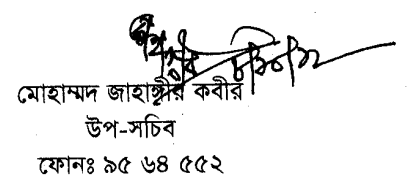 মোহাম্মদ জাহাঙ্গীর কবীর
উপ-সচিব
ফোনঃ ৯৫ ৬৪ ৫৫২